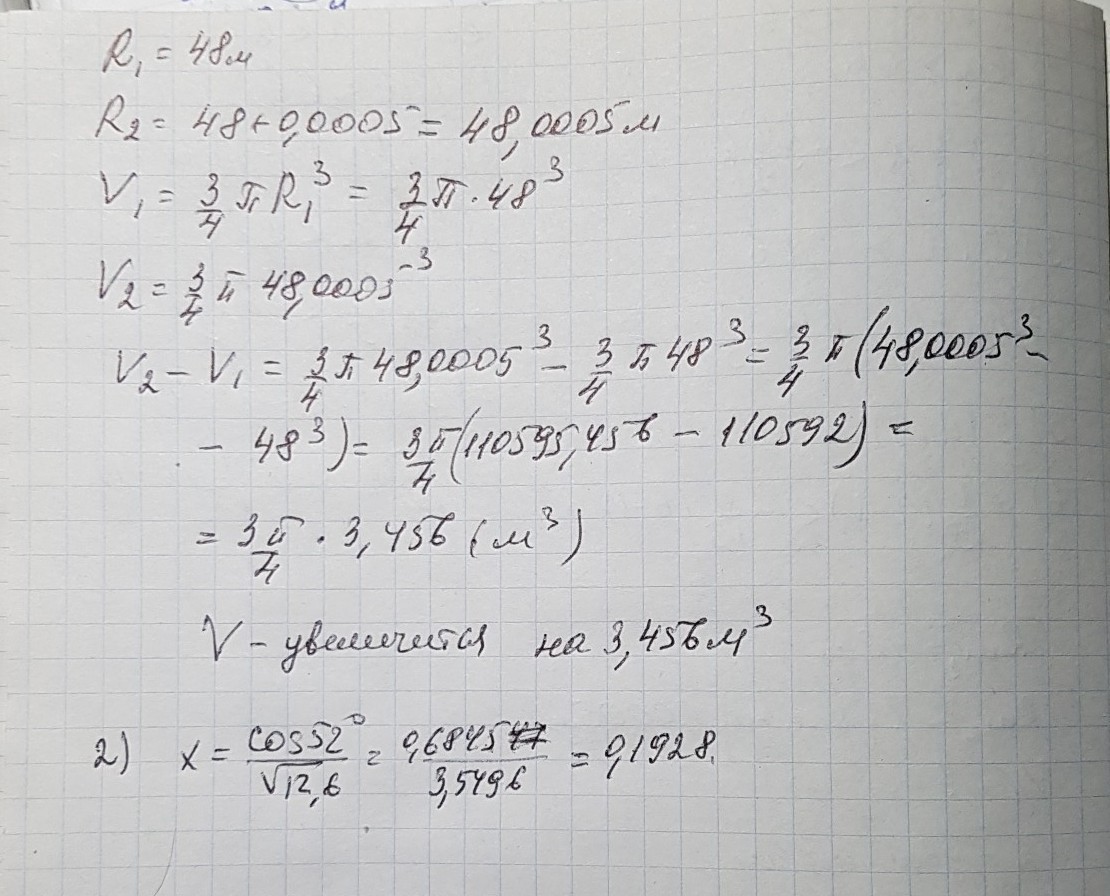 R₁ = 48м
R₂ = 48+0,0005 = 48,0005м
V₁ = 3/4 π R₁³ = 3/4 π · 48³
V₂ = 3/4 π 48,0005³
V₂ - V₁ = 3/4 π 48,0005³ - 3/4 π 48³ = 3/4 π (48,0005³ -
- 48³) = 3π/4 (110595,456 - 110592) =
= 3π/4 · 3,456 (м³)
V - увеличится на 3,456м³
2) x = cos52°/√12,6 = 0,6845/3,5496 = 0,1928.